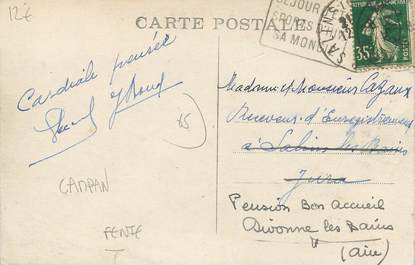 12€
CARTE POSTALE
SEJOUR
SPORTS
SA MON
SALINS
35c
Cordiale pensée
Madame et Monsieur Cazaux
Receveur d'Enregistrement
à Salins les Bains
Jura
Pension Bon Accueil
Divonne les Bains
(Ain)
65
CAMPAN
FENTE